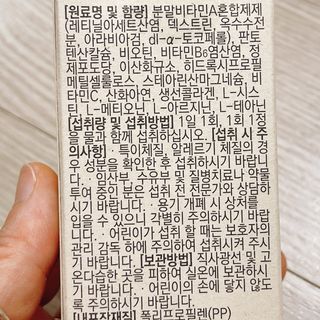 [원료명 및 함량] 분말비타민A혼합제제
(레티닐아세트산염, 덱스트린, 옥수수전
분, 아라비아검, dl-α-토코페롤), 판토
텐산칼슘, 비오틴, 비타민B₆염산염, 정
제포도당, 이산화규소, 히드록시프로필
메틸셀룰로스, 스테아린산마그네슘, 비
타민C, 산화아연, 생선콜라겐, L-시스
틴, L-메티오닌, L-아르지닌, L-테아닌
[섭취량 및 섭취방법] 1일 1회, 1회 1정
을 물과 함께 섭취하십시오. [섭취 시 주
의사항] · 특이체질, 알레르기 체질의 경
우 성분을 확인한 후 섭취하시기 바랍니
다. · 임산부, 수유부 및 질병치료나 약물
투여 중인 분은 섭취 전 전문가와 상담하
시기 바랍니다. · 용기 개폐 시 상처를
입을 수 있으니 각별히 주의하시기 바랍
니다. · 어린이가 섭취 할 때는 보호자의
관리 감독 하에 섭취하여 섭취시켜 주시
기 바랍니다. [보관방법] 직사광선 및 고
온다습한 곳을 피하여 실온에 보관하시
기 바랍니다. · 어린이의 손에 닿지 않도
록 주의하시기 바랍니다.
[내포장재질] 폴리프로필렌(PP)